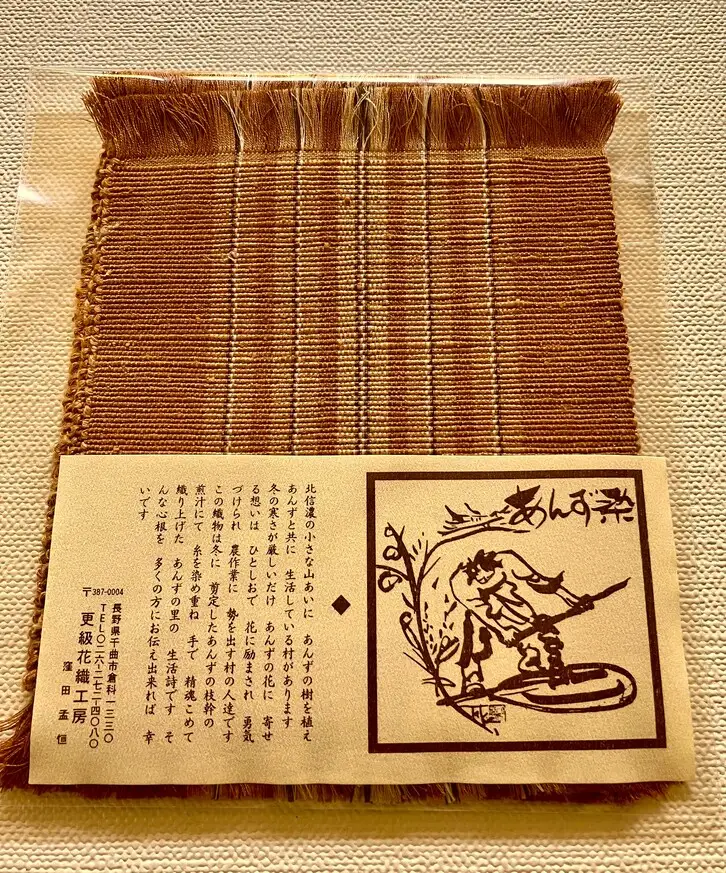 あんず染
北信濃の小さな山あいに　あんずの樹を植え
あんずと共に　生活している村があります
冬の寒さが厳しいだけ　あんずの花に　寄せ
る想いは　ひとしおで　花に励まされ　勇気
づけられ　農作業に　勢を出す村の人達です
この織物は冬に　剪定したあんずの枝幹の
煎汁にて　糸を染め重ね　手で　精魂こめて
織り上げた　あんずの里の　生活詩です　そ
んな心根を　多くの方にお伝え出来れば　幸
いです
〒387-0004
長野県千曲市倉科一三三〇
TEL〇二六-二七二-四〇八〇
更級花織工房
窪田孟恒